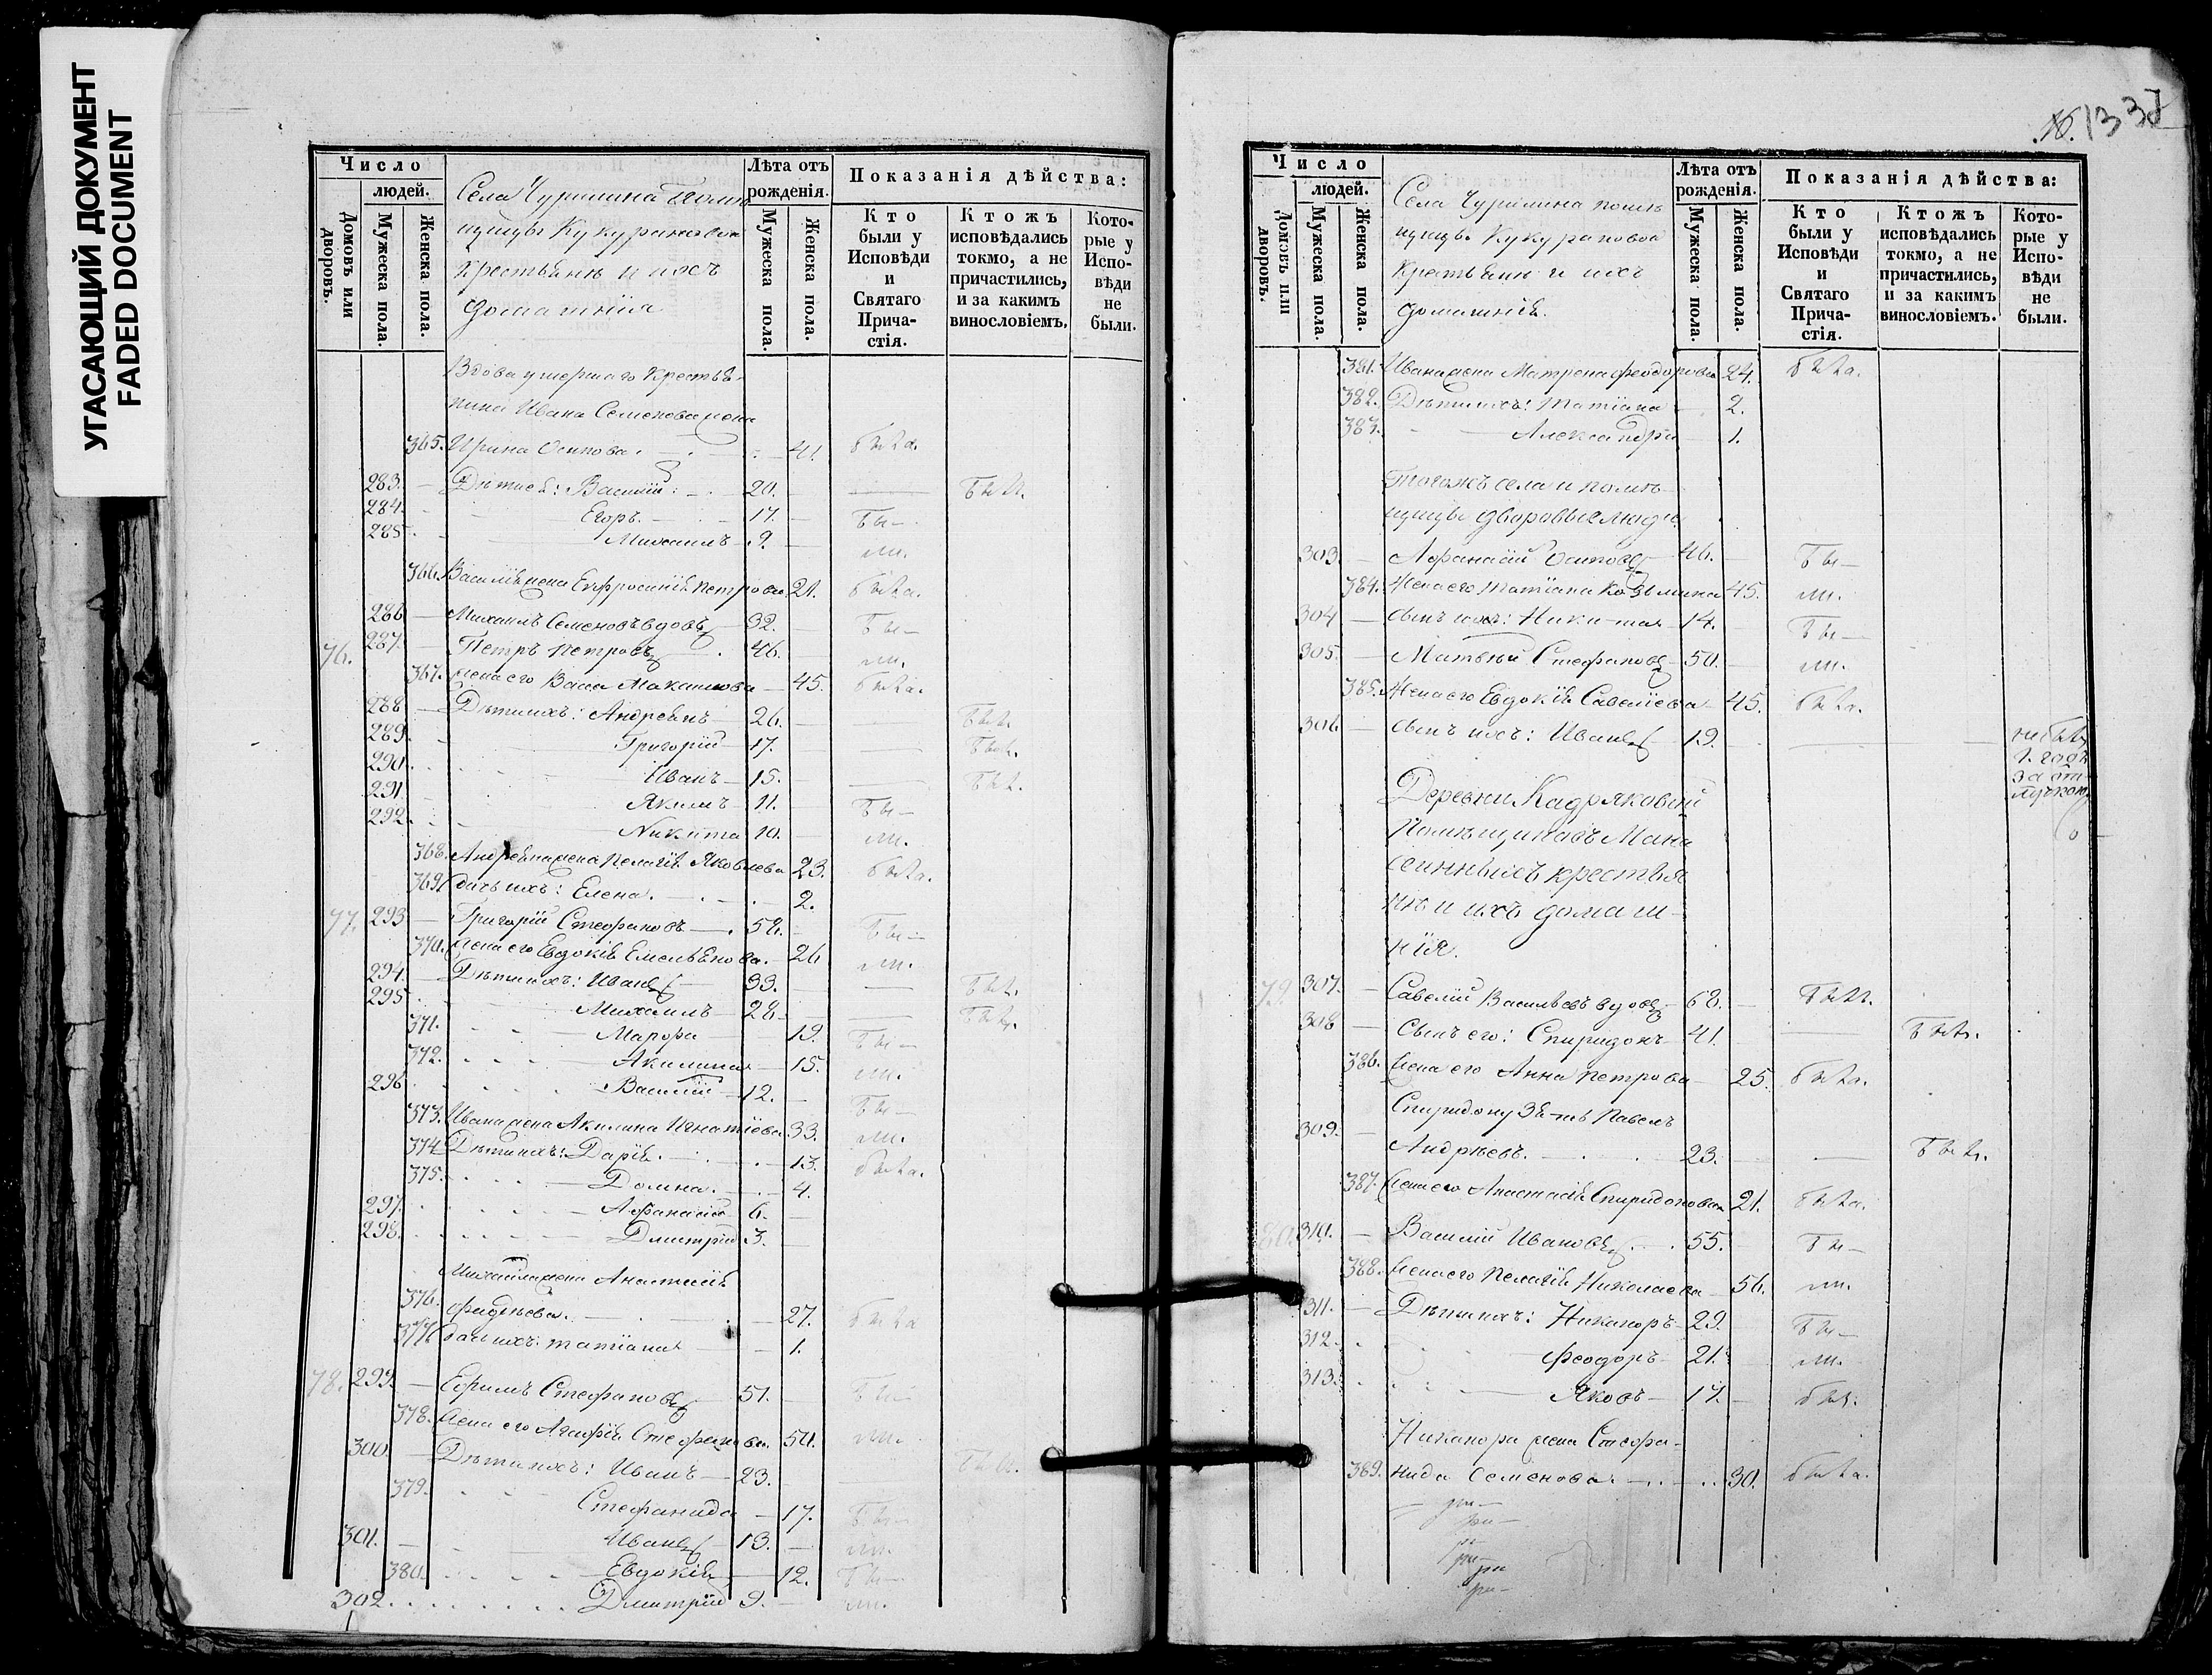 УГАСАЮЩИЙ ДОКУМЕНТ
FADED DOCUMENT
Число
людей.
Домовъ или дворовъ.
Мужеска пола.
Женска пола.
Села Чуршина Помѣ
щицы Кукурановой
Крестьянѣ и ихъ
домашнія
Лѣта отъ рожденія.
Мужеска пола.
Женска пола.
Показанія дѣйства:
Кто были у Исповѣди и Святаго Причастія.
Ктожъ исповѣдались токмо, а не причастились, и за какимъ винословіемъ.
Которые у Исповѣди не были.
Вдова умершаго Крестья-
нина Ивана Семенова жена
365. Ирина Осипова. 41. была.
283. Дѣти ея: Василій: 20. былъ.
284. Егоръ. 17. бы-
285. Михаилъ 9. ли.
366. Василія жена Евфросинія Петрова 21. была.
286 Михаилъ Семеновъ вдовъ 32. бы-
76. 287. Петръ Петровъ 46. ли.
367. жена его Васса Максимова 45. была.
288 Дѣти ихъ: Андреянъ 26. былъ.
289. Григорій 17. былъ.
290. Иванъ 15. былъ.
291. Якимъ 11. бы-
292. Никита 10. ли.
368. Андреяна жена Пелагія Яковлева 23. была.
369. дочь ихъ: Елена. 2.
77. 293 Григорій Стефановъ 58. бы-
370. жена его Евдокія Емельянова. 26 ли.
294. Дѣти ихъ: Иванъ 33. былъ.
295 Михаилъ 28. былъ.
371. Марфа 19. бы-
372. Акилина 15. ли.
296 Василій 12. бы-
373. Ивана жена Акилина Игнатіева 33. ли.
374 Дѣти ихъ: Дарія. 13. была.
375. Домна. 4.
297. Афанасій 6.
298. Дмитрій 3.
Михаила жена Анастасія
376. Фадѣева. 27. была
377. дочь ихъ: Татіана 1.
78. 299. Ефимъ Стефановъ 51. бы-
378. жена его Агафія Стефанова. 50. ли.
300. Дѣти ихъ: Иванъ 23. былъ.
379. Стефанида 17. бы-
301. Иванъ 13. ли.
380. Евдокія 12. бы-
302. Дмитрій 9. ли.
Число
людей.
Домовъ или дворовъ.
Мужеска пола.
Женска пола.
Села Чуршина помѣ
щицы Кукурановой
Крестьянъ и ихъ
домашніе.
Лѣта отъ рожденія.
Мужеска пола.
Женска пола.
Показанія дѣйства:
Кто были у Исповѣди и Святаго Причастія.
Ктожъ исповѣдались токмо, а не причастились, и за какимъ винословіемъ.
Которые у Исповѣди не были.
381. Ивана жена Матрена Феодорова 24. была.
382. Дѣти ихъ: Татіана 2.
383. Александра 1.
Тогожъ села и помѣ-
щицы дворовые люди
303. Афанасій Осиповъ 46. бы-
384. Жена его Татіана Козьмина 45. ли.
304 сынъ ихъ: Никита 14. бы-
305. Матвей Стефановъ 50. ли.
385. Жена его Евдокія Савеліева 45. была.
306 сынъ ихъ: Иванъ 19. не былъ 1. годъ за отлучкою
Деревни Кадряковой
Помѣщиковъ Мана
сеинныхъ крестья
нѣ и ихъ домаш-
нія.
79. 307. Савелій Васильевъ вдовъ 68. былъ.
308 Сынъ его: Спиридонъ 41. былъ.
386. жена его Анна Петрова 25. была.
Спиридону Зять Павелъ
309. Андрѣевъ. 23. былъ.
387. жена его Анастасія Спиридонова 21. была.
80. 310. Василій Ивановъ 55. бы-
388. жена его Пелагія Николаева 56. ли.
311. Дѣти ихъ: Никаноръ 29. бы-
312. Феодоръ 21. ли.
313. Яковъ 17. былъ.
Никанора жена Стефа-
389. нида Семенова. 30. была.